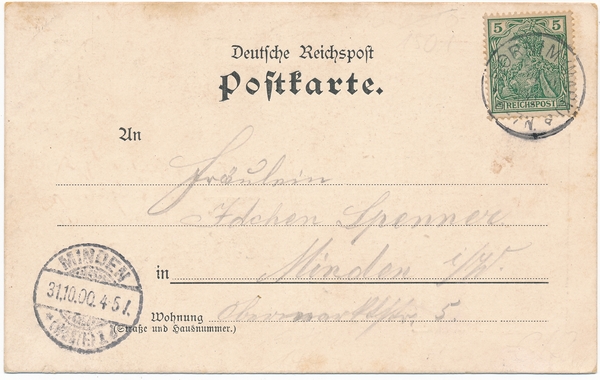 5 5
REICHSPOST
Deutsche Reichspost
Postkarte.
An
Fräulein
Adchen Spenner
in Minden i/W.
Wohnung Obermarktstr. 5.
(Straße und Hausnummer.)
MINDEN
31.10.00. 4-5 N.